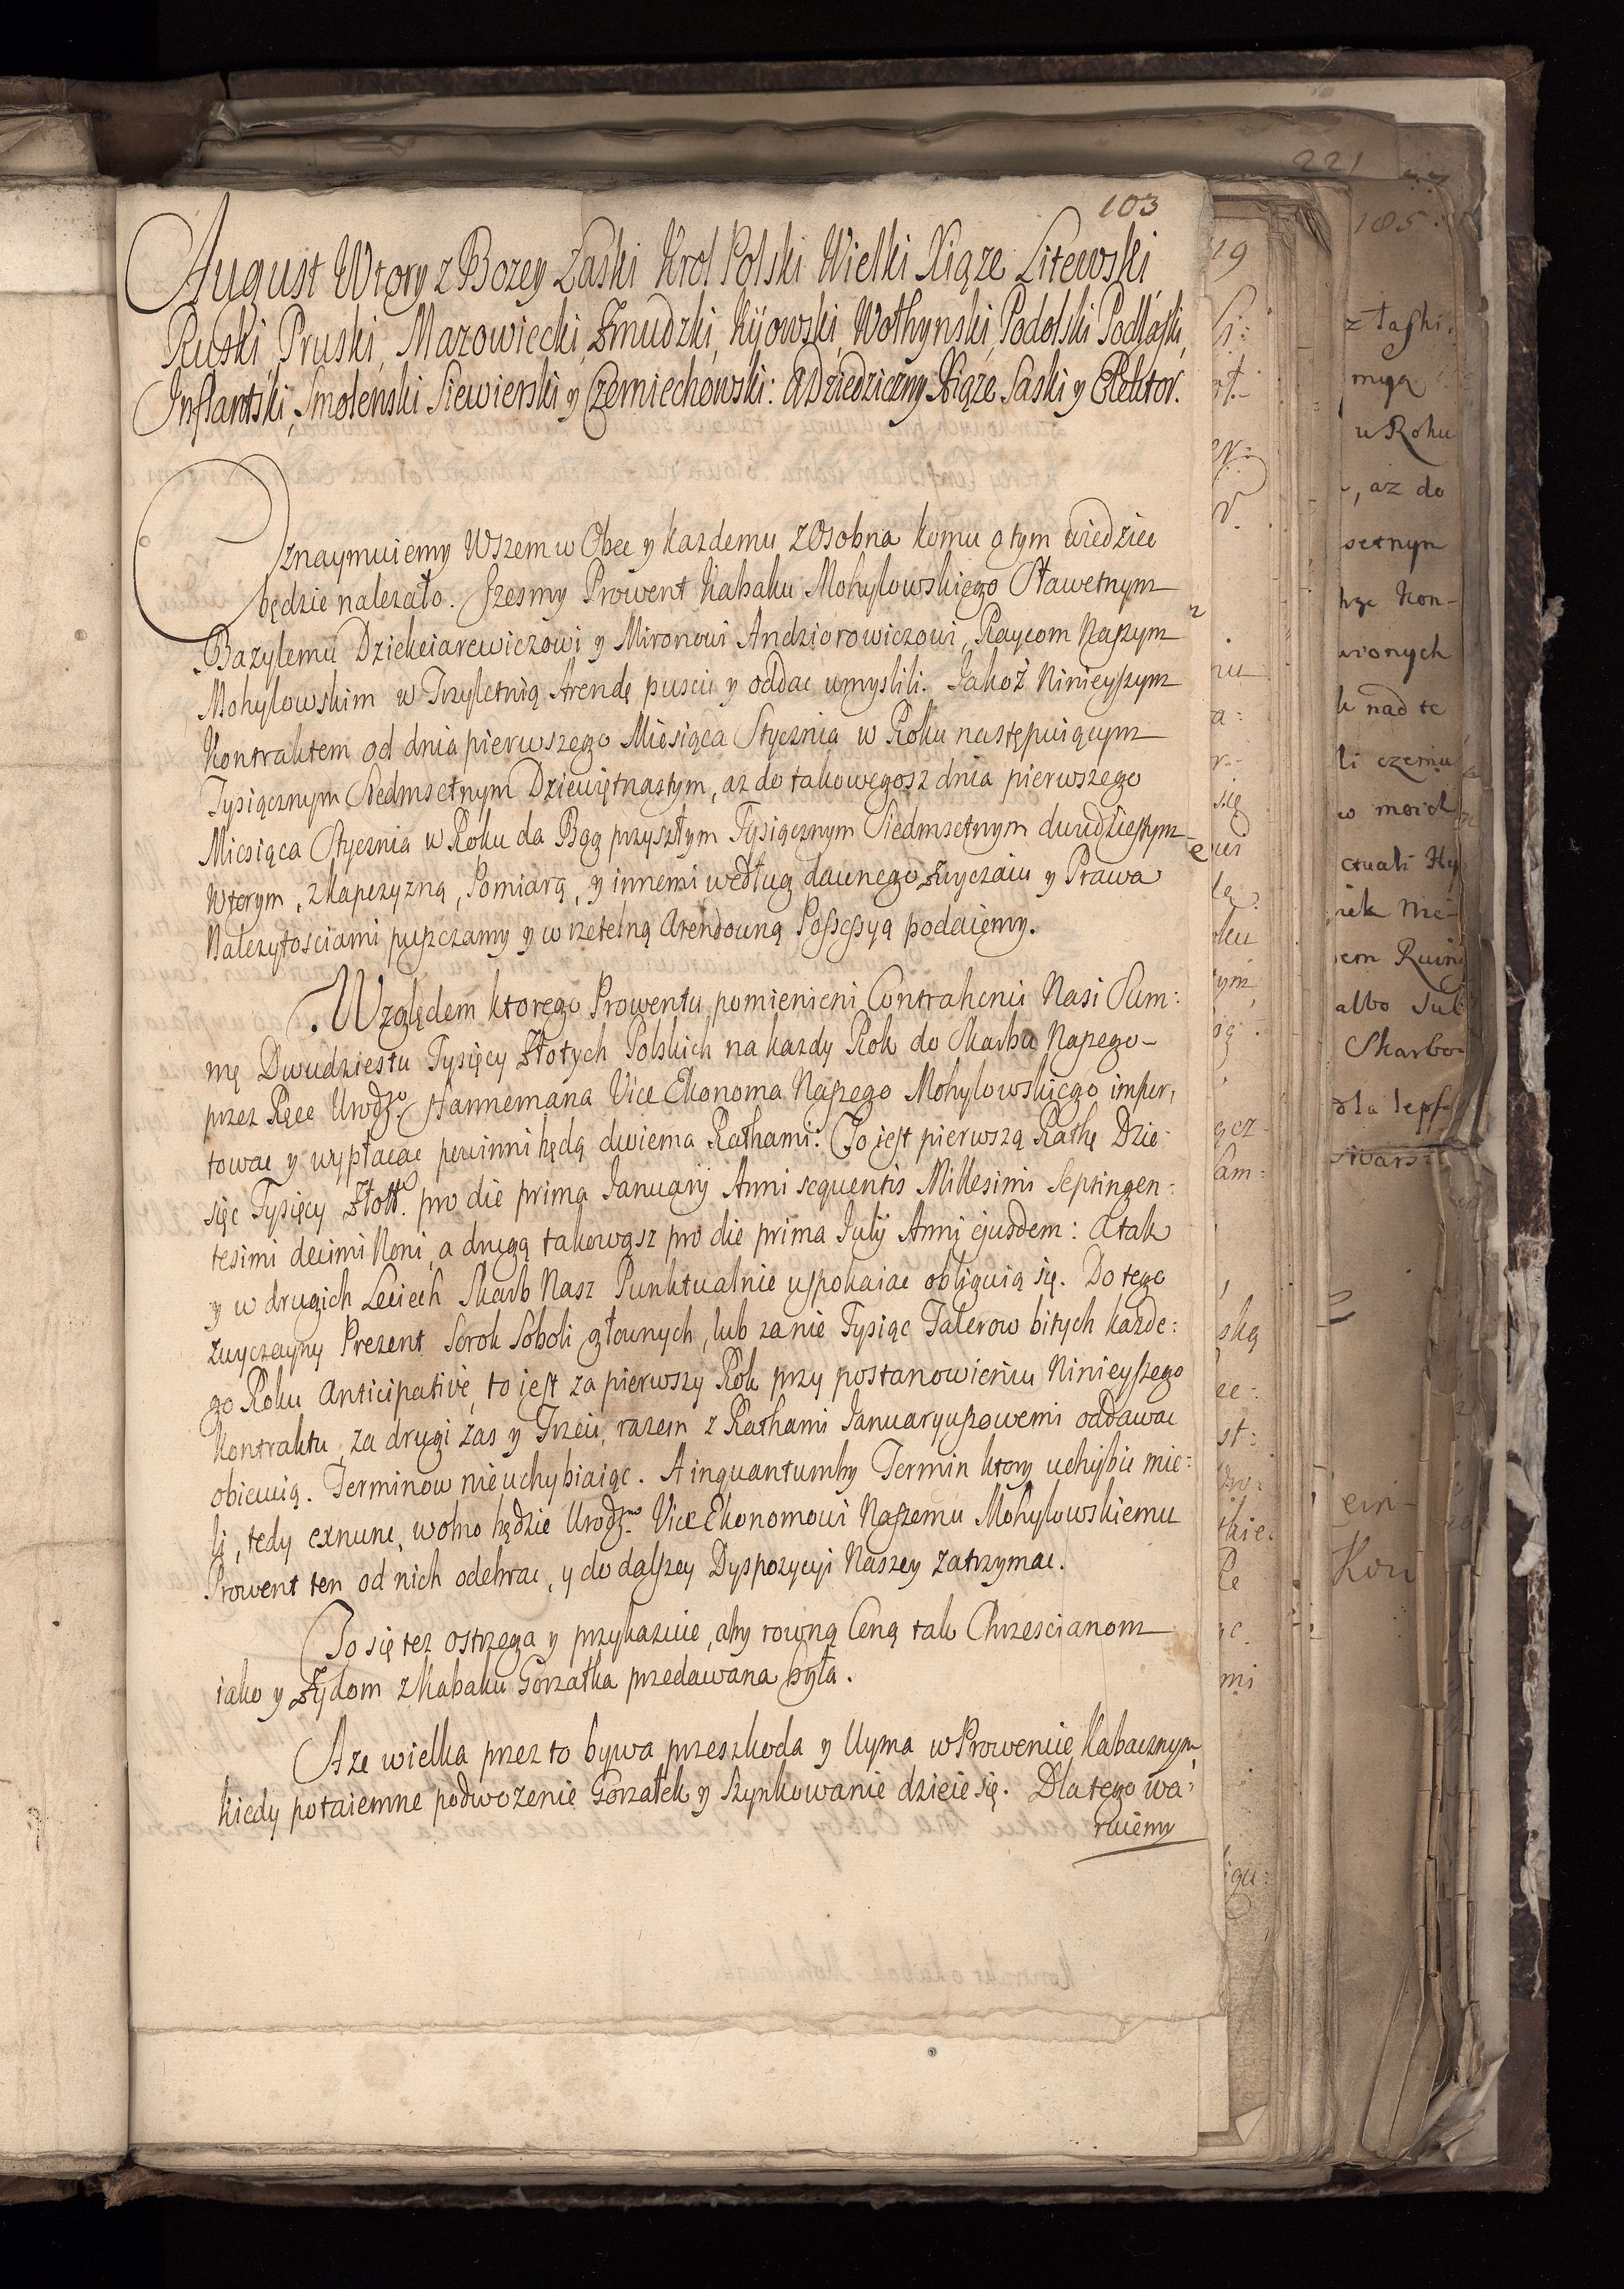 103
August Wtory z Bozey Łaski Krol Polski Wielki Xiąze Litewski,
Ruski, Pruski, Mazowiecki, Zmudzki, Kijowski, Wołhynski, Podolski Podlaski,
Inflantski, Smolenski Siewierski y Czerniechowski: a Dziedziczny Xiąze Saski y Elektor.
Oznaymuiemy Wszem w Obec y kazdemu zosobna komu o tym wiedziec
będzie nalezało. Jzesmy Prowent Kabaku Mohylowskiego Sławetnym
Bazylemu Dziekciarewiczowi y Mironowi Andziorowiczowi, Raycom Naszym
Mohylowskim w Trzyletnią Arendę puscic y oddac umyslili. Jakoż Ninieyszym
Kontraktem od dnia pierwszego Miesiąca Stycznia w Roku następuiącym
Tysiącznym Siedmsetnym Dziewiętnastym, az do takowegosz dnia pierwszego
Miesiąca Stycznia w Roku da Bąg przyszłym Tysiącznym Siedmsetnym dwudziestym
Wtorym, z kapczyzną, Pomiarą, y innemi według dawnego zwyczaiu y Prawa
Nalezytosciami puszczamy y w rzetelną Arendowną Possessyą podaiemy.
Względem ktorego Prowentu, pomienieni Contrahenci Nasi Sum:
mę Dwudziestu Tysięcy Złotych Polskich na kazdy Rok do Skarbu Naszego
przez Ręce Urodzo. Hannemana Vice Ekonoma Naszego Mohylowskiego impor:
towac y wypłacac powinni będą dwiema Rathami: To jest pierwszą Rathę Dzie:
sięc Tysięcy Złott. pro die prima Januarij Anni sequentis Millesimi Septingen:
tesimi decimi Noni, a drugą takowąsz pro die prima Julij Anni ejusdem: A tak
y w drugich Leciech Skarb Nasz Punktualnie uspokaiac obliguią się. Do tego
zwyczayny Prezent Sorok Soboli głownych, lub za nie Tysiąc Talerow bitych kazde:
go Roku anticipative, to jest za pierwszy Rok przy postanowieniu Ninieyszego
Kontraktu, za drugi zas y Trzeci, razem z Rathami Januaryuszowemi oddawac
obiecuią. Terminow nie uchybiaiąc. A inquantumby Termin ktory uchybic mie:
li, tedy exnunc, wolno będzie Urodz. Vice Ekonomowi Naszemu Mohylowskiemu
Prowent ten od nich odebrac, y do dalszey Dyspozycyi Naszey zatrzymac.
To się tez ostrzega y przykazuie, aby rowną Ceną tak Chrzescianom
iako y Zydom z Kabaku Gorzałka przedawana była.
A ze wielka przez to bywa przeszkoda y Uyma w Prowencie Kabacznym,
kiedy potaiemne podwozenie Gorzałek y Szynkowanie dzieie się. Dla tego wa:
ruiemy